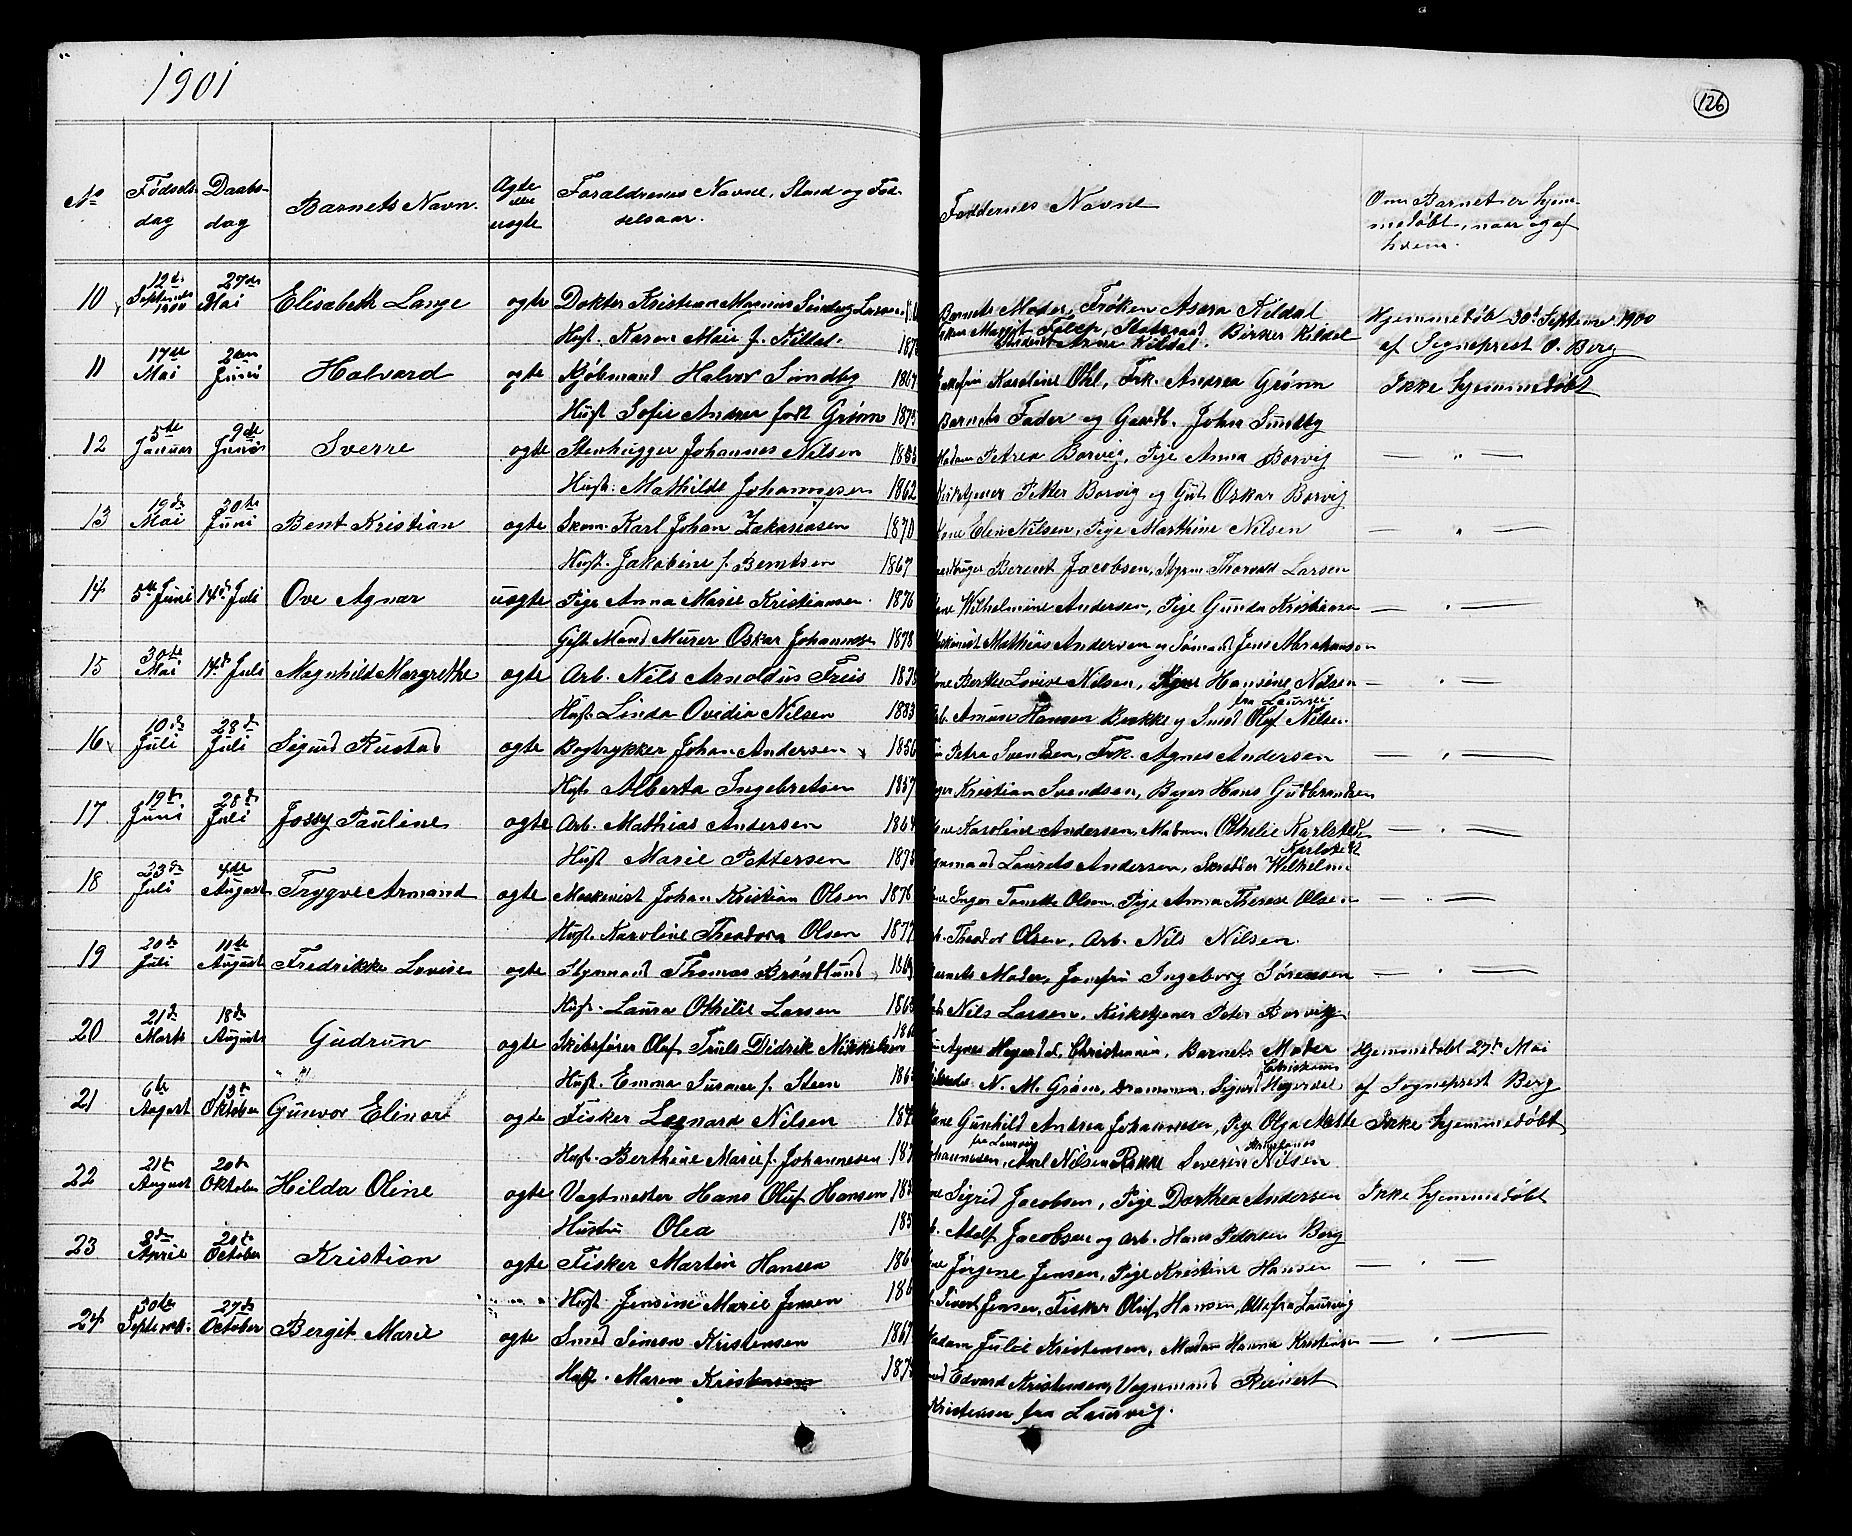 1901
126
No
Fødsels-
dag
Daabs-
dag
Barnets Navn.
Ægte
eller
uægte
Forældrenes Navne, Stand og Fød-
selsaar.
Faddernes Navne
Om Barnet er hjem-
medøbt, naar og af
hvem.
10 12te Septembr 1900 27de Mai Elisabeth Lange ogte Dokter Kristian Magnus Sindberg Larsen
Barnets Moder, Frøken Asora Kildal
Hjemmedøbt 30te Septembr 1900
Hust. Karen Marie f. Kildal 187
Margit Falep, Statsraad Birker Kildal
Student Arne Kildal.
af Sogneprest O. Berg
11 17de Mai 2den Juni Halvard ogte Kjøbmand Halvor Sundby 1867
Karoline Ohl, Frk. Andrea Grønn
Ikke hjemmedøbt
Hust Sofie Andrea født Grønn 1875
Barnets Fader og Gaardb. John Sundby
12 5te Januar 9de Juni Sverre ogte Stenhugger Johannes Nilsen 1855
Madam Petrea Borvig, Pige Anna Borvig
— " —
Hust. Mathilde Johannesen 1862
Kirketjener Peter Borvig og Gut Oskar Borvig
13 19de Mai 30te Juni Bent Kristian ogte Skom. Karl Johan Zakariasen 1870
Kone Elen Nilsen, Pige Marthine Nilsen
— " —
Hust. Jakobine f. Berntsen 1867
Berent Jacobsen, Styrm. Thorvald Larsen
14 5te Juni 14de Juli Ove Agnar uogte Pige Anna Marie Kristiansen 1876
Kone Wilhelmine Andersen, Pige Gunda Kristiansen
— " —
Gift Mand Murer Oskar Johannesen 1878
Maskinist Mathias Andersen og Sømand Jens Abrahamsen
15 30te Mai 14de Juli Magnhild Margrethe ogte Arb. Nils Arnoldus Friis 1875
Kone Berthe Lovise Nilsen, Pige Hansine Nilsen
— " —
fra Laurvig
Hust. Linda Ovidia Nilsen 1883
Arb. Amund Hansen Bakke og Smed Olaf Nilsen.
16 10de Juli 28de Juli Sigurd Rustad ogte Bogtrykker Johan Andersen 1856
Petra Svendsen, Frk. Agnes Andersen
— " —
Hust. Alberta Ingebretsen 1857
Kristian Svendsen, Bager Hans Gudbrandsen
17 19de Juni 28de Juli Jossy Pauline ogte Arb. Mathias Andersen 1864
Kone Karoline Andersen, Madam Othelie Karlsted
— " —
Karlsted
Hust Marie Pettersen 1873
Laurits Andersen, Skrædder Wilhelm
18 23de Juli 4de August Trygve Armand ogte Maskinist Johan Kristian Olsen 1876
Kone Inger Tonette Olsen, Pige Anna Therese Olsen
— " —
Hust. Karoline Theodora Olsen 1877
Arb. Theodor Olsen, Arb. Nils Nilsen.
19 20de Juli 11te August Fredrikke Lovise ogte Styrmand Thomas Brøndlund 1869
Barnets Moder, Jomfru Ingeborg Sørensen
— " —
Hust. Laura Othelie Larsen 1863
Nils Larsen, Kirketjener Peter Borvig
20 21de Marts 18de August Gudrun ogte Skibsfører Olaf Truls Didrik Nikkelsen 186
Agnes Hegerdal, Christiania, Barnets Moder
Hjemmedøbt 27de Mai
Christiania
Hust. Emma Susane f. Steen 186
N. M. Grøm, Drammen, Sigurd Hegerdal
af Sogneprest Berg
21 6te August 13de Oktober Gunvor Elinore ogte Fisker Leonard Nilsen 187
Kone Gunhild Andrea Johannesen, Pige Olga Mette
Ikke hjemmedøbt
fra Laurvig
Hust. Berthine Marie f. Johannesen 187
Johannesen, Axel Nilsen Severin Nilsen
22 21de August 20de Oktober Hilda Oline ogte Vagtmester Hans Oluf Hansen 18
Kone Sigrid Jacobsen, Pige Dorthea Andersen
Ikke hjemmedøbt
Hustru Olea 185
Arb. Adolf Jacobsen og Arb. Hans Pedersen Berg
23 8de April 20de October Kristian ogte Fisker Martin Hansen 186
Kone Jørgine Jensen, Pige Kristine Hansen
— " —
Hust. Jensine Marie Jensen 186
Sivert Jensen, Fisker Oluf Hansen, Alle fra Laurvig
24 30te September 27de October Bergit Marie ogte Smed Simon Kristensen 1867
Madam Julie Kristensen, Madam Hanna Kristensen
— " —
Hust. Maren Kristensen 187
Edvard Kristensen, Vognmand Reinert
Kristensen fra Laurvig.